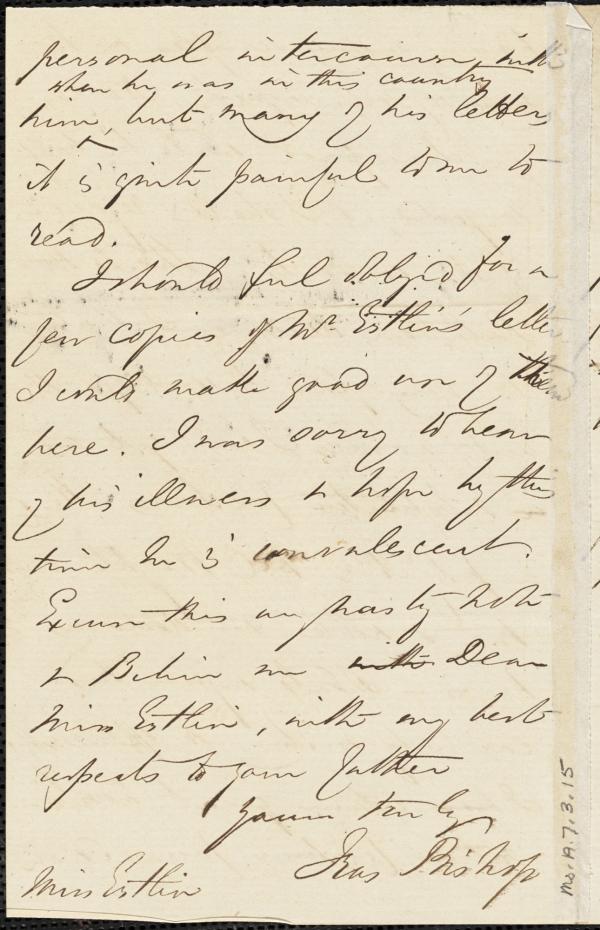 personal intercourse with
when he was in this country
him, but many of his letters
it is quite painful to me to
read.
I should feel obliged for a
few copies of Mr. Estlin's letter
I could make good use of them
here. I was sorry to hear
of his illness & hope by this
time he is convalescent.
Excuse this hasty note
& Believe me with Dear
Miss Estlin, with my best
respects to your father
yours truly
Fras Bishop
Miss Estlin
Ms. A. 7. 3. 15